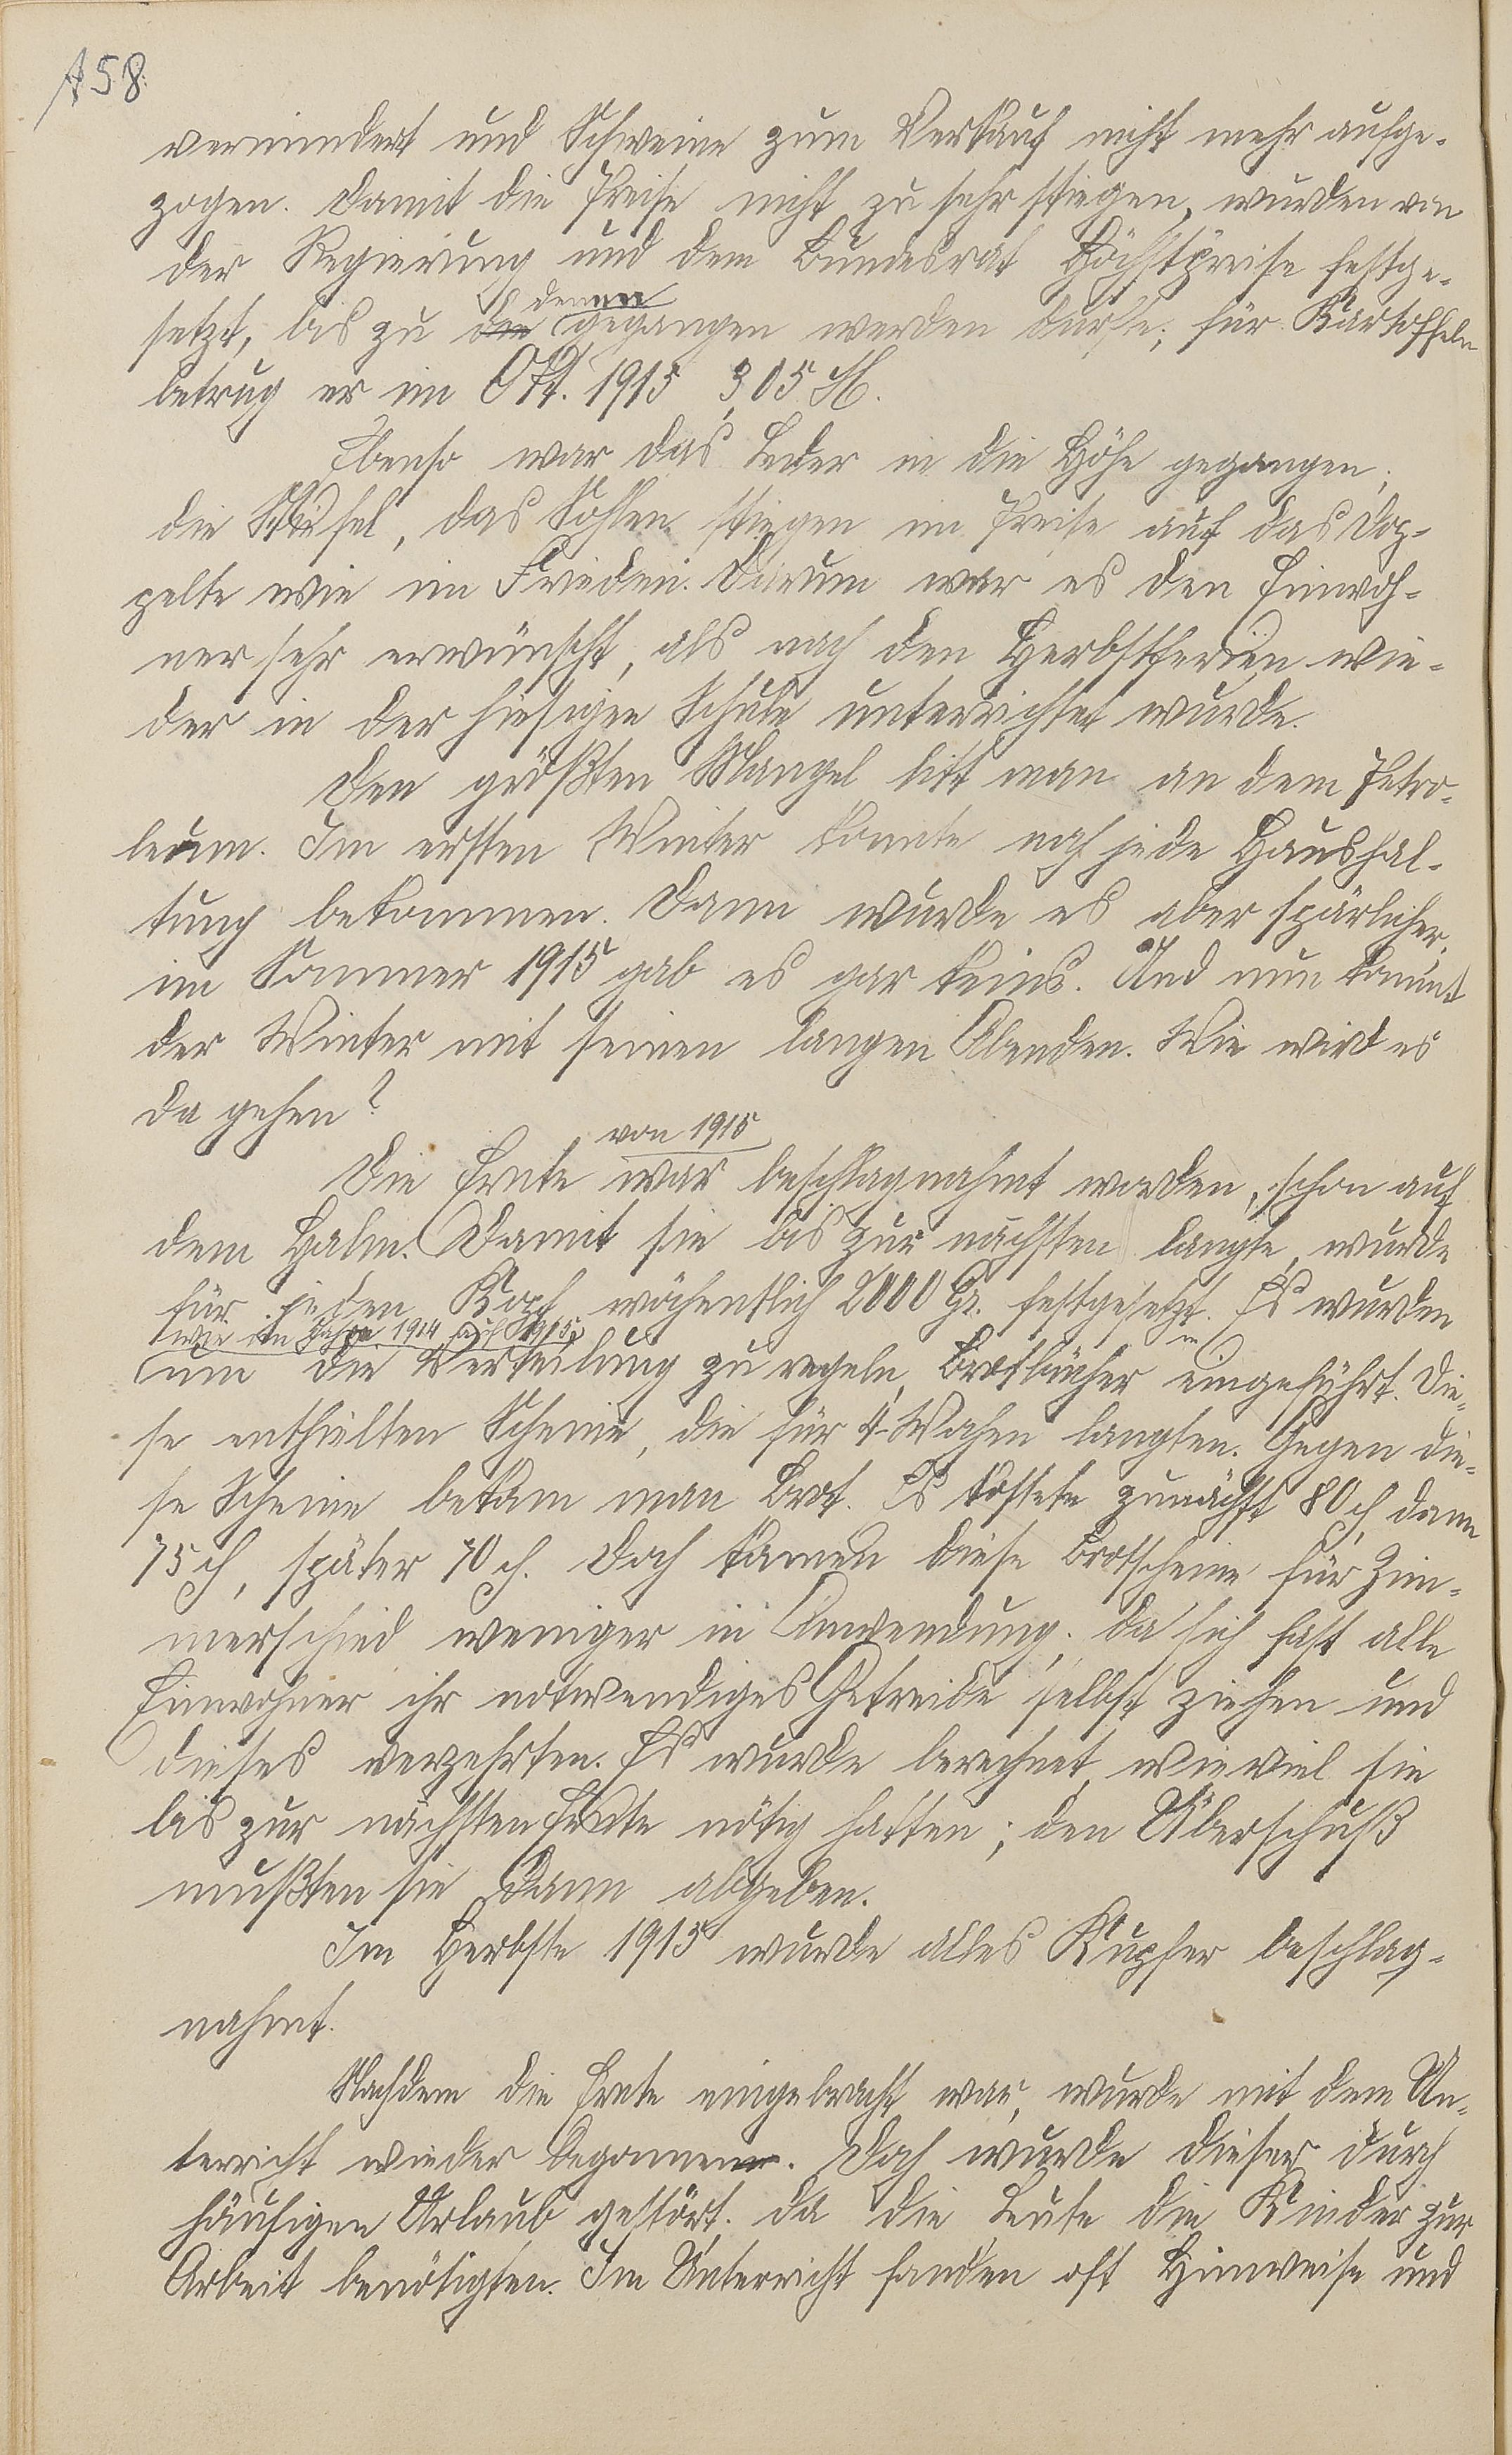 A58.
vermindert und Schweine zum Verkauf nicht mehr aufge-
zogen. Damit die Preise nicht zu sehr stiegen, wurden von
der Regierung und dem Bundesrat Höchstpreise festge-
denen
setzt, bis zu die gegangen werden durfte; für Kartoffeln
betrug er im Okt. 1915 3,05 M.
Ebenso war das Leder in die Höhe gegangen;
die Stiefel, das Sohlen stiegen im Preise auf das Dop-
pelte wie im Frieden. Darum war es den Einwoh-
ner sehr erwünscht, als nach den Herbstferien wie-
der in der hiesigen Schule unterrichtet wurde.
Den größten Mangel litt man an dem Petro-
leum. Im ersten Winter konnte noch jede Haushal-
tung bekommen. Dann wurde es aber spärlicher,
im Sommer 1915 gab es gar keins. Und nun kommt
der Winter mit seinen langen Abenden. Wie wird es
da gehen?
von 1915
Die Ernte war beschlagnahmt worden, schon auf
dem Halm. Damit sie bis zur nächsten langte, wurde
für jeden Kopf wöchentlich 2000 Gr. festgesetzt. Es wurden
wie im Jahre 1914 auch 1915
um die Verteilung zu regeln, Brotbücher eingeführt. Die-
se enthielten Scheine, die für 4 Wochen langten. Gegen die-
se Scheine bekam man Brot. Es kostete zunächst 80 ₰, dann
75 ₰, später 70 ₰. Doch kamen diese Brotscheine für Zim-
merschied weniger in Anwendung, da sich fast alle
Einwohner ihr notwendiges Getreide selbst ziehen und
dieses verzehrten. Es wurde berechnet, wieviel sie
bis zur nächsten Ernte nötig hatten; den Überschuß
mußten sie dann abgeben.
Im Herbste 1915 wurde alles Kupfer beschlag-
nahmt.
Nachdem die Ernte eingebracht war, wurde mit dem Un-
terricht wieder begonnen. Doch wurde dieser durch
häufigen Urlaub gestört, da die Leute die Kinder zur
Arbeit benötigten. Im Unterricht fanden oft Hinweise und